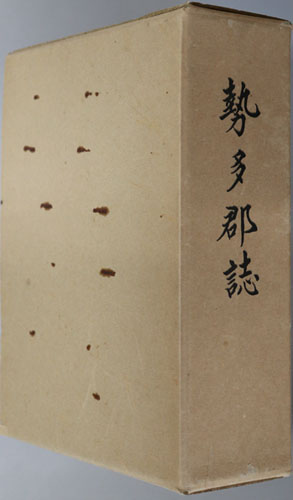 勢多郡誌